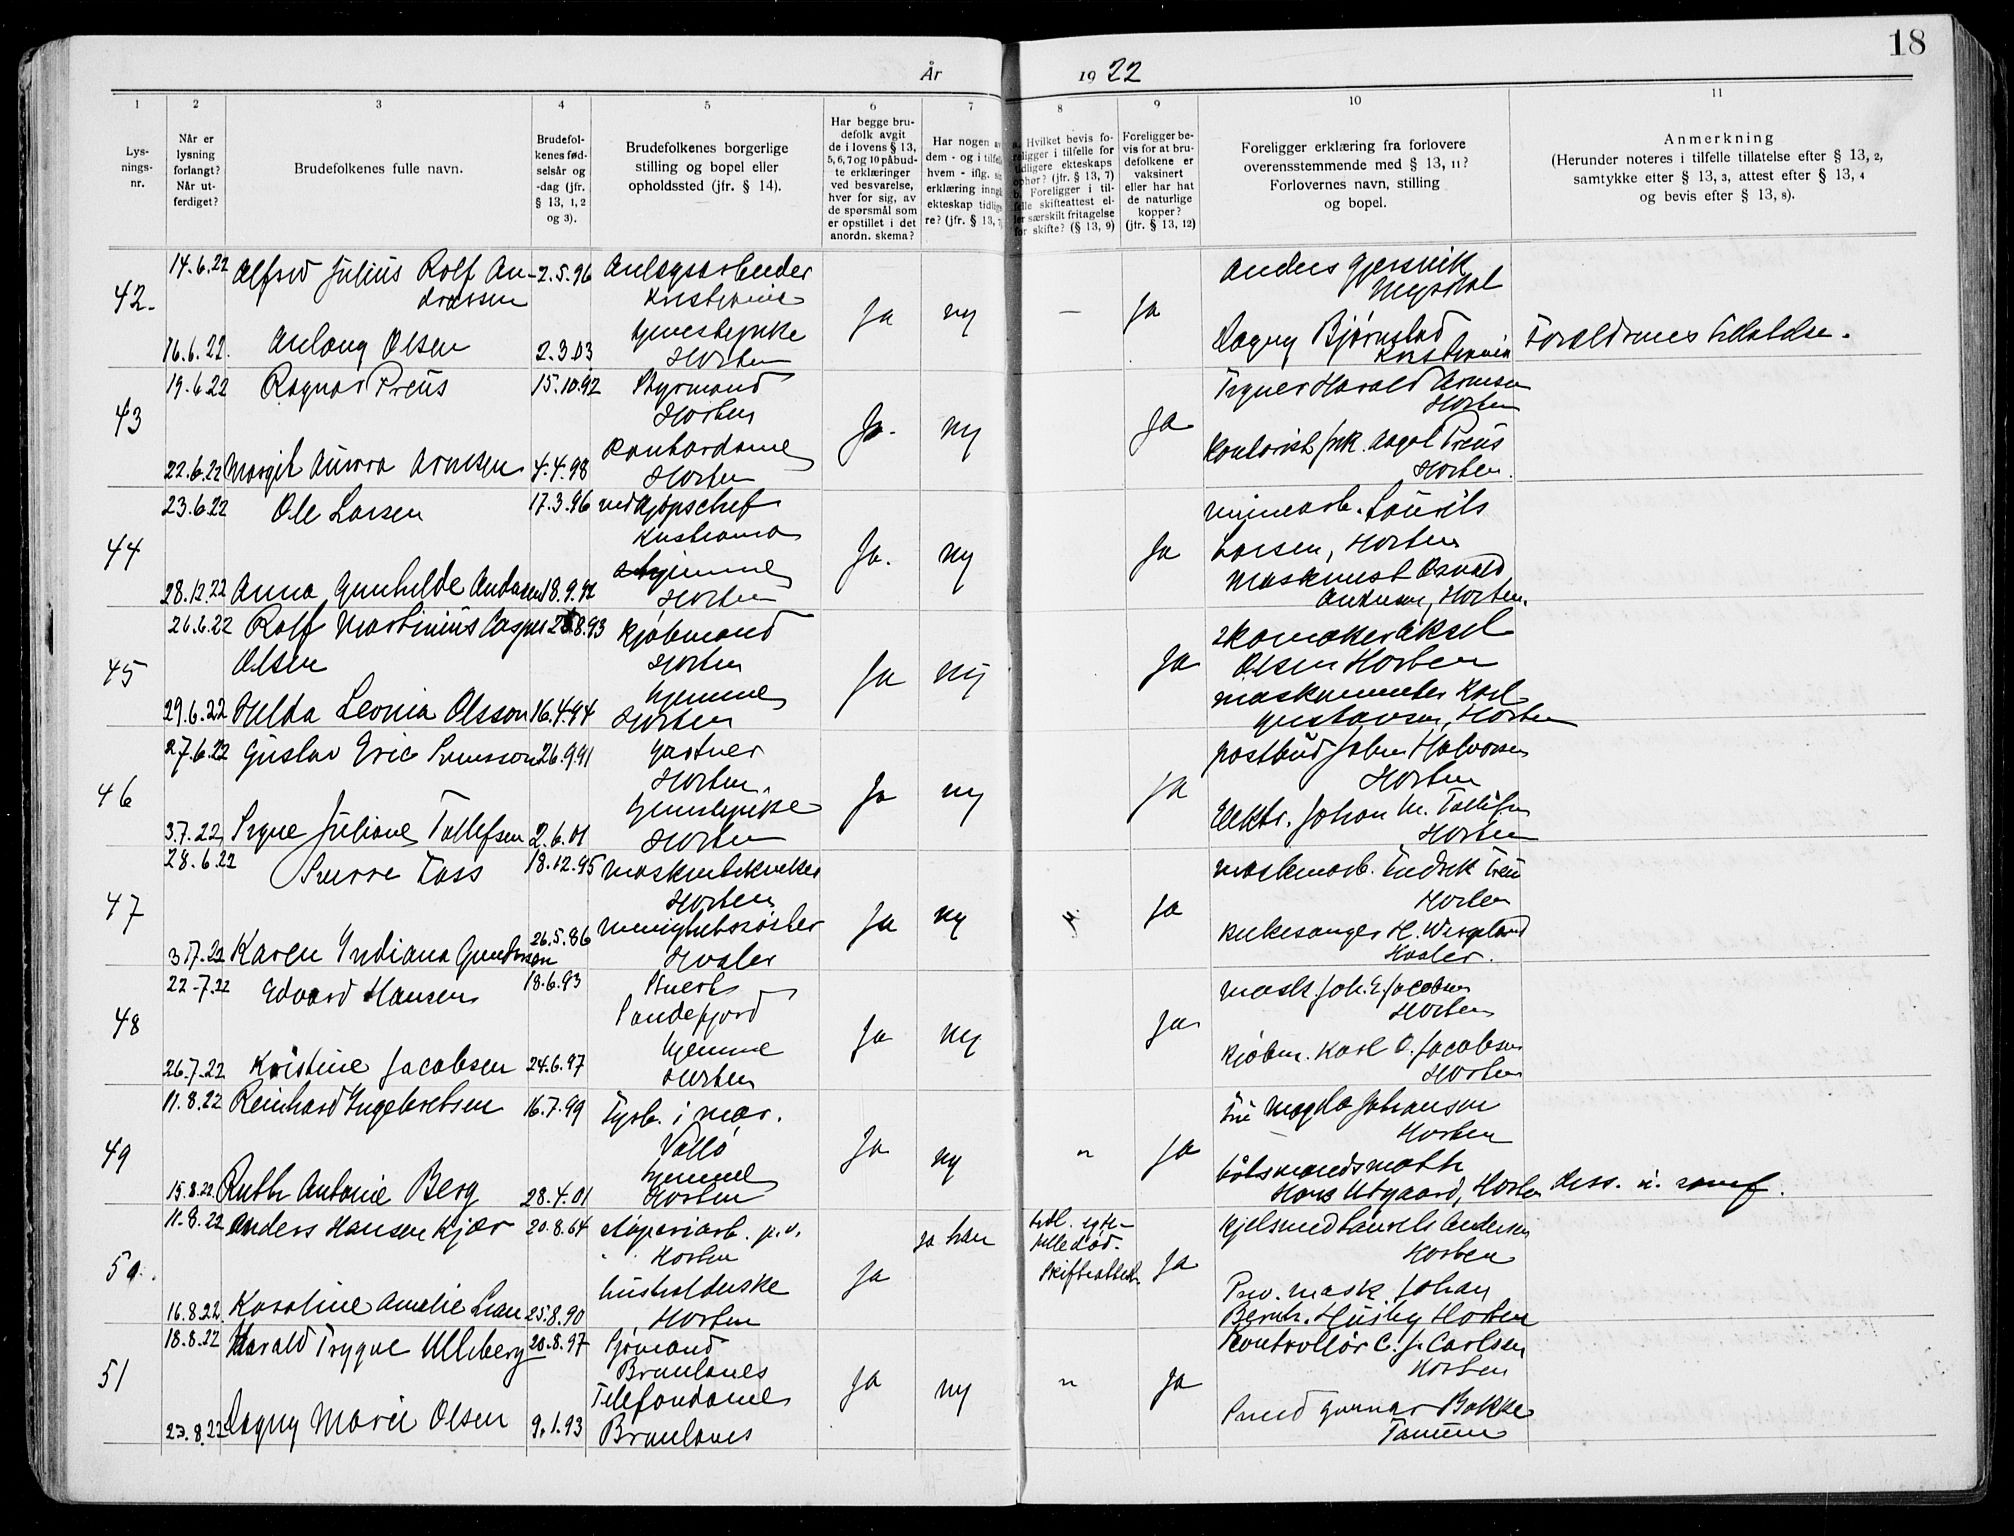 18
År 19 22
1
2
3
4
5
6
7
8
9
10
11
Lys-
nings-
nr.
Når er
lysning
forlangt?
Når ut-
ferdiget?
Brudefolkenes fulle navn.
Brudefol-
kenes fød-
selsår og
-dag (jfr.
§ 13, 1, 2
og 3).
Brudefolkenes borgerlige
stilling og bopel eller
opholdssted (jfr. § 14).
Har begge bru-
defolk avgit
de i lovens § 13,
5, 6, 7 og 10 påbud-
te erklæringer
ved besvarelse,
hver for sig, av
de spørsmål som
er opstillet i det
anordn. skema?
Har nogen av
dem - og i tilfelle
hvem - iflg.
erklæring inngå
ekteskap tidlige
re? (jfr. § 13,
a. Hvilket bevis fo-
religger i tilfelle for
tidligere ekteskaps
ophør? (jfr. § 13, 7)
b. Foreligger i til-
felle skifteattest el-
ler særskilt fritagelse
for skifte? (§ 13, 9)
Foreligger be-
vis for at bru-
defolkene er
vaksinert
eller har hat
de naturlige
kopper?
(jfr. § 13, 12)
Foreligger erklæring fra forlovere
overensstemmende med § 13, 11?
Forlovernes navn, stilling
og bopel.
Anmerkning
(Herunder noteres i tilfelle tillatelse efter § 13, 2,
samtykke etter § 13, 3, attest efter § 13, 4
og bevis efter § 13, 8).
42.
14.6.22 Alfred Julius Rolf An-
drassen 2.5.96 Anlegsarbeider
Kristiania
Ja ny — Ja
Anders Gjersvik
16.6.22. Aslaug Olsen 2.3.03
Horten
Dagny Bjørnstad
Kristiania
Foreldrenes tillatelse.
43
19.6.22 Ragnar Preus 15.10.92 Styrmand
Horten
Ja. ny Ja
Harald Arnesen
Horten
22.6.22 Margit Aurora Arnesen 4.4.98 Kontordame
Horten
Kontorist frk. Aagot Preus
Horten.
44
23.6.22 Ole Larsen 17.3.96
Kristiania
Ja. ny Ja
minearb. Laurits
Larsen, Horten
28.12.22 Anna Gunhilde Andersen 18.9.92 hjemme
Horten
Maskinist Osvald
Andersen, Horten.
45
26.6.22 Rolf Martinius Casper
Olsen 8.93 Kjøbmand
Horten
Ja nij Ja
Skomaker Aksel
Olsen Horten
29.6.22 Hilda Leonia Olsson 16.4.94 hjemme
Horten
Karl
Gustavsen, Horten
46
27.6.22 Gustav Eric Svensson 26.9.91 Gartner
Horten
Ja ny Ja
postbud John Halvorsen
Horten
3.7.22 Signe Juliane Tollefsen 2.6.01
Horten
Elektr. Johan M. Tollefsen
Horten
47
28.6.22 Sverre Foss 18.12.95
Horten
Ja ny Ja
maskinarb. Fredrik
Horten
3.7.22 Karen Indiana Gundersen 26.5.86 menighetssøster
Hvaler
kirkesanger H.
Hvaler.
48
22.7.22 Edvard Hansen 18.6.93 Stuert
Sandefjord
Ja ny Ja
Mask. Joh. E. Jacobsen
Horten
26.7.22 Kristine Jacobsen 24.6.97 hjemme
Horten
Kjøbm. Karl O. Jacobsen
Horten
49
11.8.22 Reinhard Ingebretsen 16.7.99 Fyrb. i mar.
Vallø
Ja ny „ Ja
Fru Magda Johansen
Horten
15.8.22 Ruth Antonie Berg 28.4.01 hjemme
Horten
båtsmandsmath
Hans Utgaard, Horten
50.
11.8.22 Anders Hansen Kjær 20.8.64 p.v.
Horten
Ja ja han
død.
Skifteattest
Ja
Kjelsmed Laurits Andersen
Horten
16.8.22 Karoline Amelie Lian 25.8.90 husholderske
Horten
Prov. mask. Johan
Bernh. Husby Horten
51
18.8.22 Harald Trygve Ulleberg 20.8.97 Sjømand
Brunlanes
Ja ny „ Ja
Kontrollør C. J. Carlsen
Horten
23.8.22 Dagny Marie Olsen 9.1.93 Telefondame
Brunlanes
Smed Gunnar Bakke
Tanum